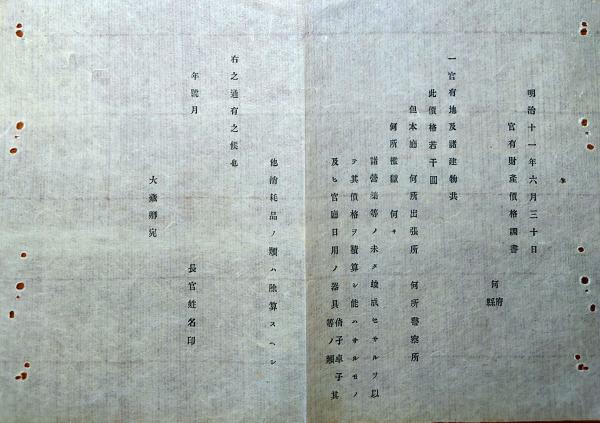 明治十一年六月三十日
官有財產價格調書
何府
縣
一官有地及諸建物共
此價格若干圓
但本廳 何所出張所 何所警察所
何所懲獄 何々
諸營築等ノ未タ竣成セサルヲ以
テ其價格ヲ積算シ能ハサルモノ
及ヒ官廳日用ノ器具倚子卓子其
等ノ類
他消耗品ノ類ハ除算スヘシ
右之通有之候也
年號月
長官姓名印
大藏卿宛